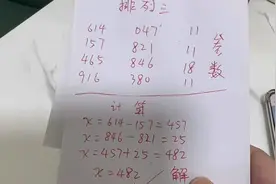 排列三
614 047 11
157 821 11
465 846 18
916 380 11
参数
计算
x=614-157=457
x=846-821=25
x=457+25=482
x=482 / 解